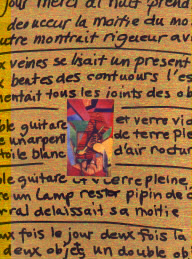 jour merci di nuit prend
deuxcur la moitie du mo
utre montrait rigueur av
x veines se liait un present
beates des contuours l'es
mentait tous les ioints des ob
ble guitare et verre vio
e unarpent de terre pl
toile blanc d'air noctur
le guitare et verre pleine
re un lamp rester pipin de c
ral delaissait sa moitie
ux fois le jour deux fois la
deux objets un double ob